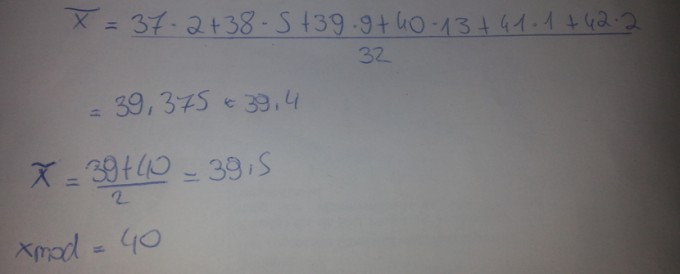 x̄ = 37·2+38·5+39·9+40·13+41·1+42·2 / 32
= 39,375 ≈ 39,4
x̃ = 39+40 / 2 = 39,5
xmod = 40